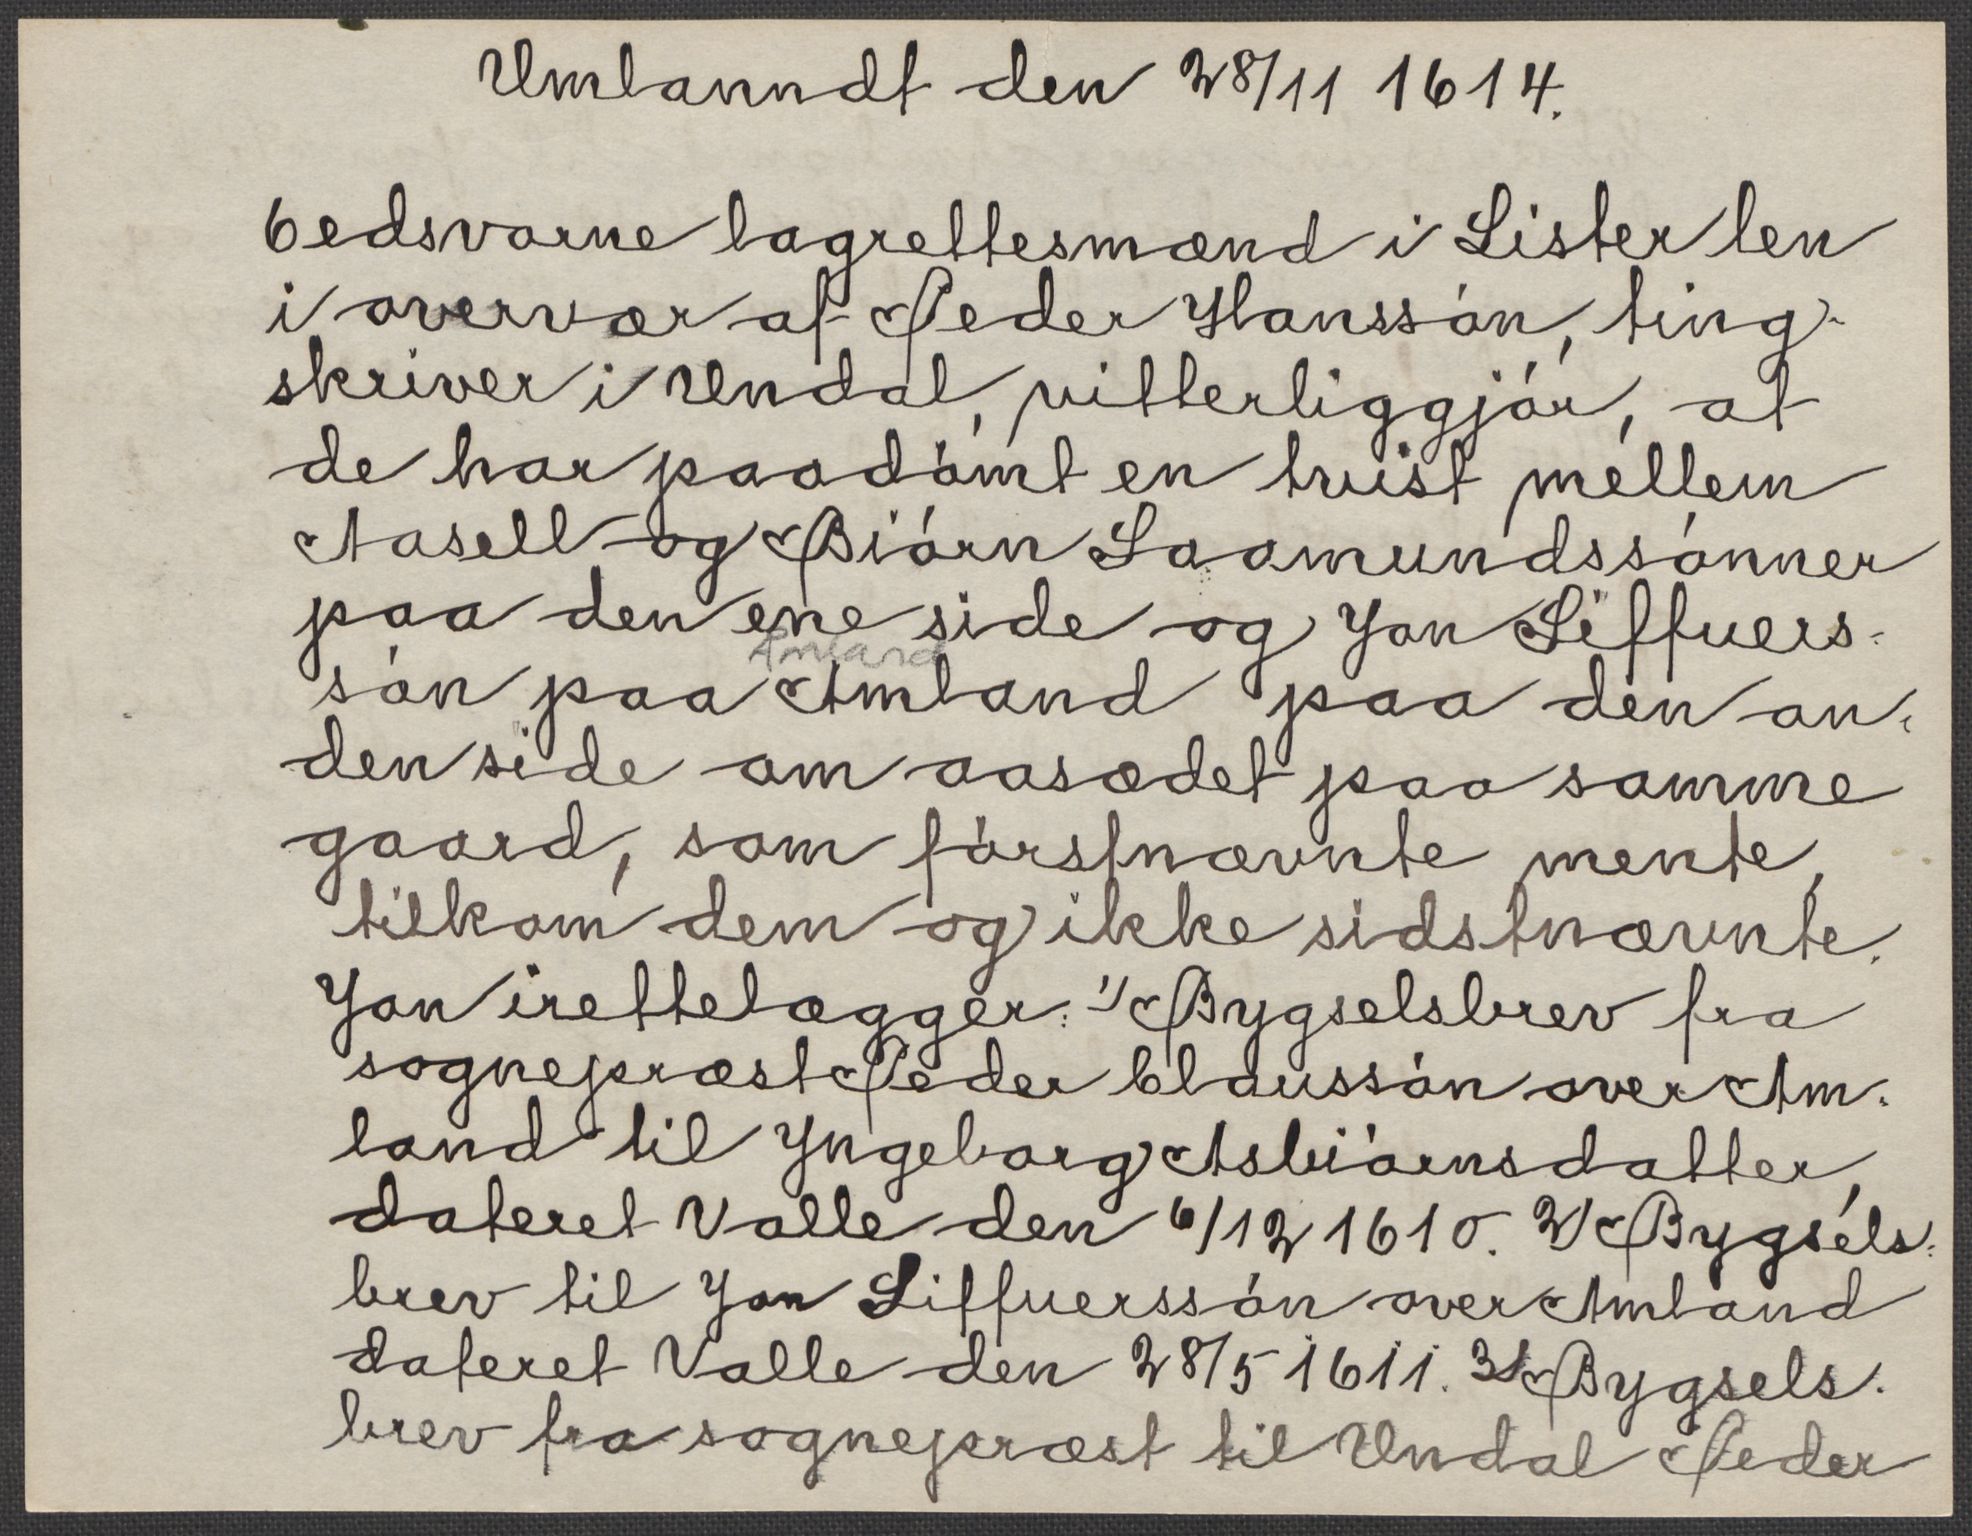 Umlanndt den 28/11 1614.
6 edsvorne lagrettesmænd i Lister len
i overvær af Peder Hanssón, ting-
skriver i Undal, vitterliggjór, at
de har paadómt en tvist mellem
Aasell og Biórn Saamundssónner
paa den ene side og Jon Siffuers-
Amland
són paa Amland paa den an-
den side om aasædet paa samme
gaard, som fórstnævnte mente,
tilkom dem og ikke sidstnævnte.
Jon irettelægger: 1/ Bygselsbrev fra
sogneprest Peder Claussón over Am-
land til Yngeborg Asbiórnsdatter,
dateret Valle den 6/12 1610. 2/ Bygsels-
brev til Jon Siffuerssón over Amland
dateret Valle den 28/5 1611. 3/ Bygsels-
brev fra sogneprest til Undal Peder